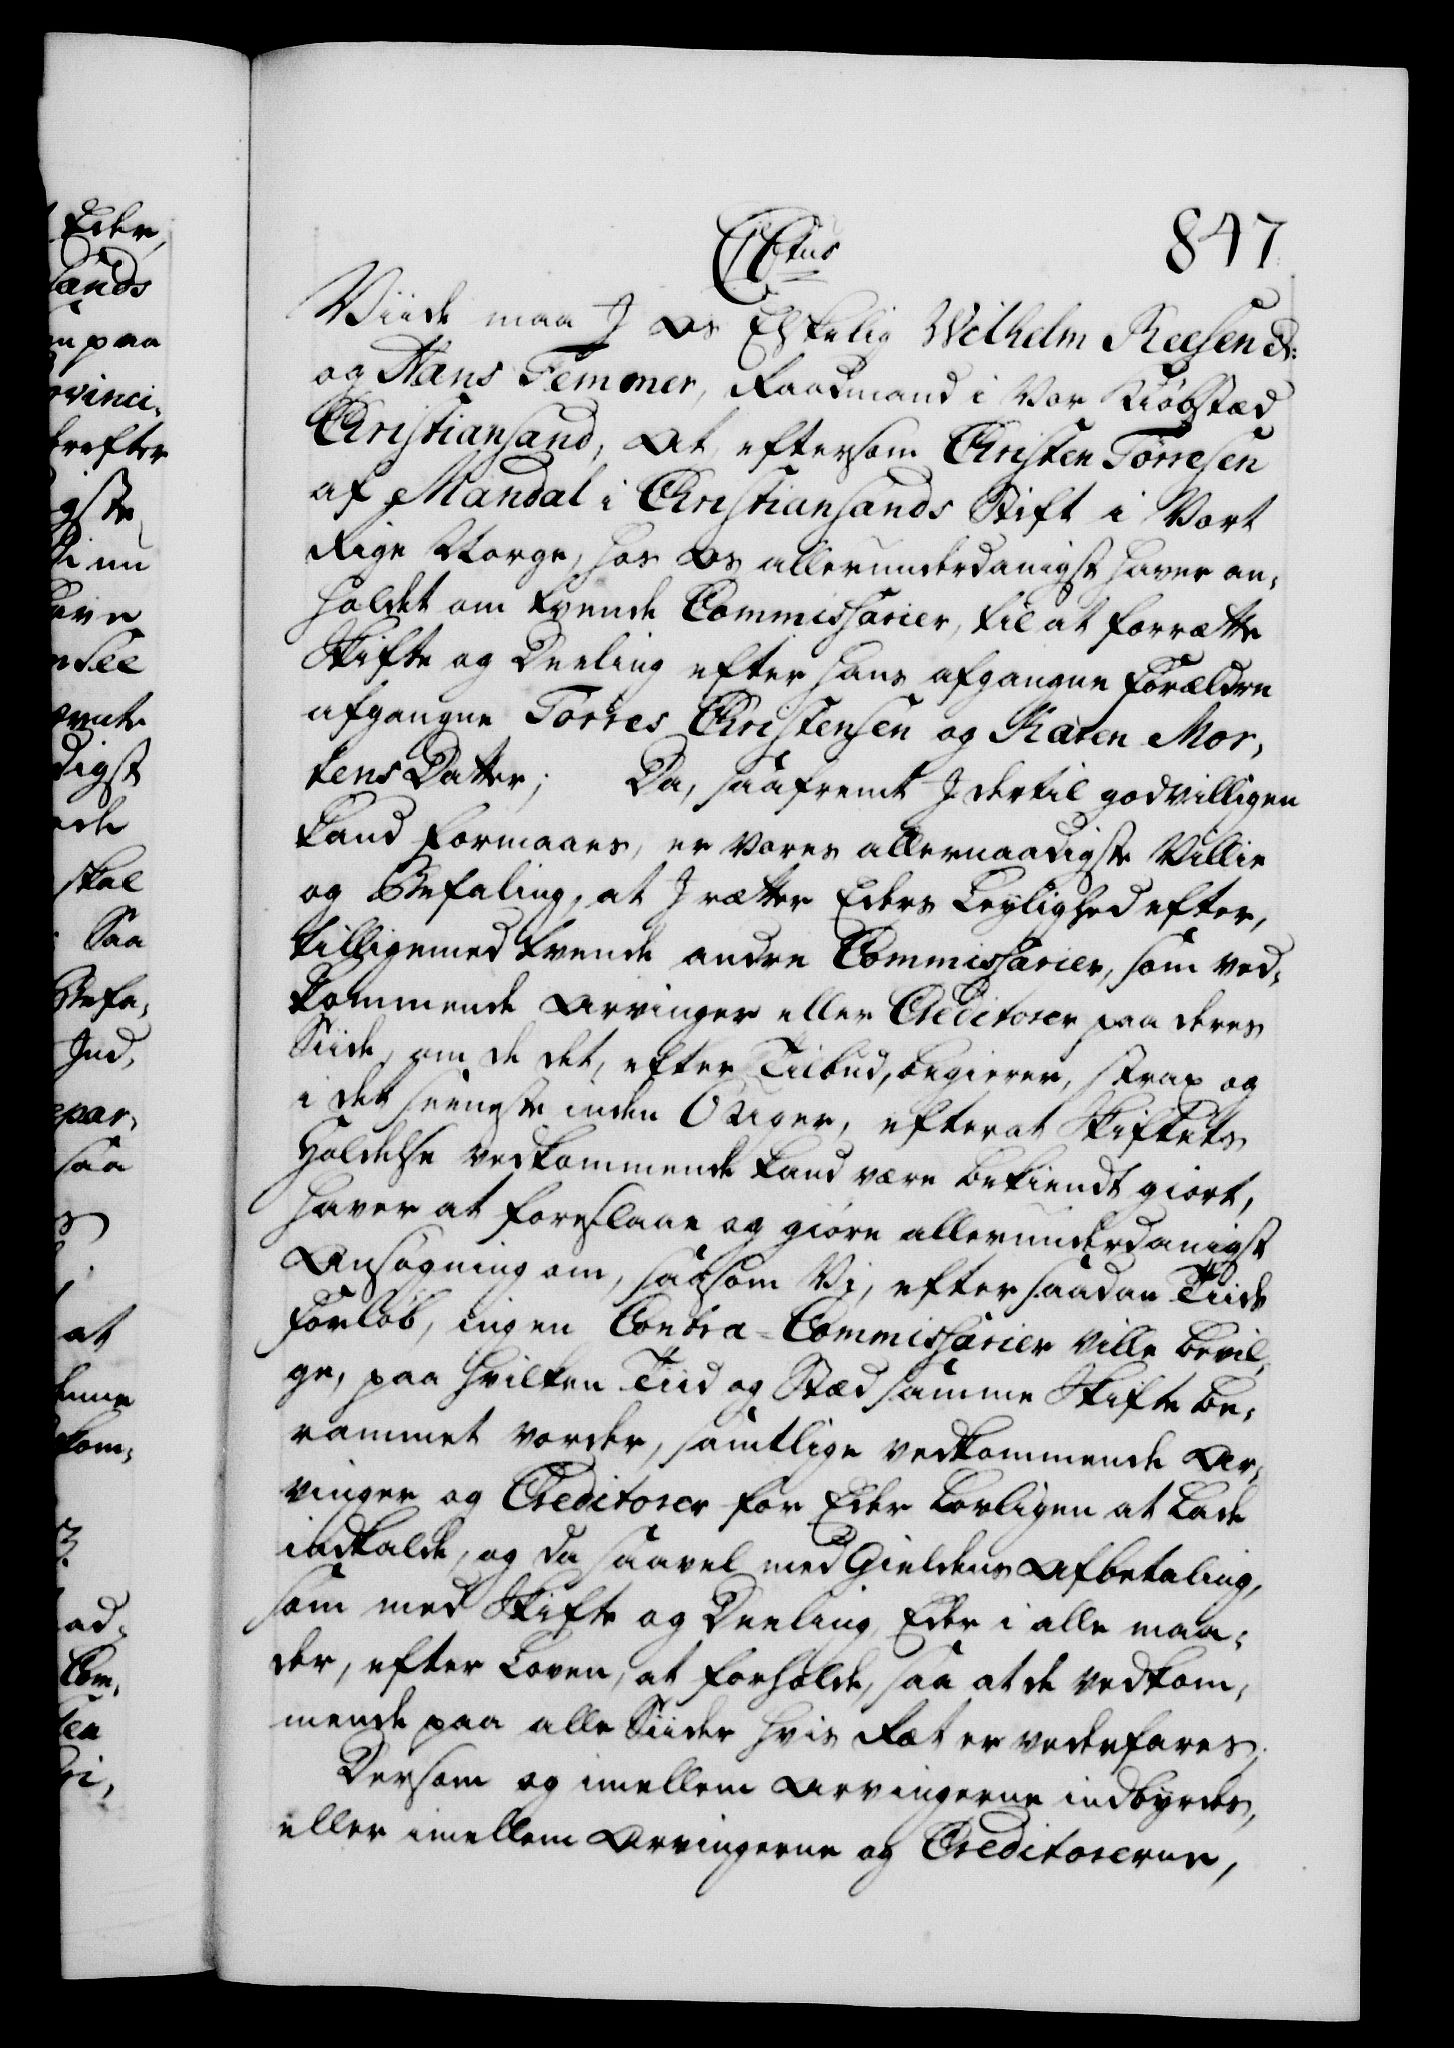 847
C 6tus
Viide maa J Os Elskelig Wilhelm Reesen &:
og Hans Femmer, Raadmand i Vor Kiøbstæd
Christiansand, At eftersom Christen Törresen
af Mandal i Christiansands Stift i Vort
Rige Norge, hos Os allerunderdanigst haver an-
holdet om tvende Commissarier, til at forrætte
Skifte og Deeling efter hans afgangne Forældre
afgangne Törres Christensen og Karen Mor-
tens Datter; Da, saafremt J dertil godvilligen
kand formaaes, er Vores allernaadigste Villie
og Befaling, at J rætter Eders Leylighed efter,
tilligemed tvende andre Commissarier, som ved-
kommende Arvinger eller Creditorer paa deres
Siide, om de det, efter Tilbud, begierer, strax og
i det seeneste inden 6 Uger, efterat Skiftets
Holdelse vedkommende kand være bekiendt giort,
haver at foreslaae og giøre allerunderdanigst
Ansøgning om, saasom Vi, efter saadan Tiids
Forløb, ingen Contra-Commissarier ville bevil-
ge, paa hvilken Tiid og Stæd samme Skifte be-
rammet vorder, samtlige vedkommende Ar-
vinger og Creditorer for Eder lovligen at lade
indkalde, og da saavel med Gieldens Afbetaling,
som med Skifte og Deeling, Eder i alle maa-
der, efter Loven, at forholde, saa at de vedkom-
mende paa alle Siider hvis Ræt er vederfares,
Dersom og imellem Arvingerne indbyrdes,
eller imellem Arvingerne og Creditorerne,
Eder,
sands
paa
ovinci-
skal
Saa
Befa-
Ind-
saa
at
kom-
ad-
Com-